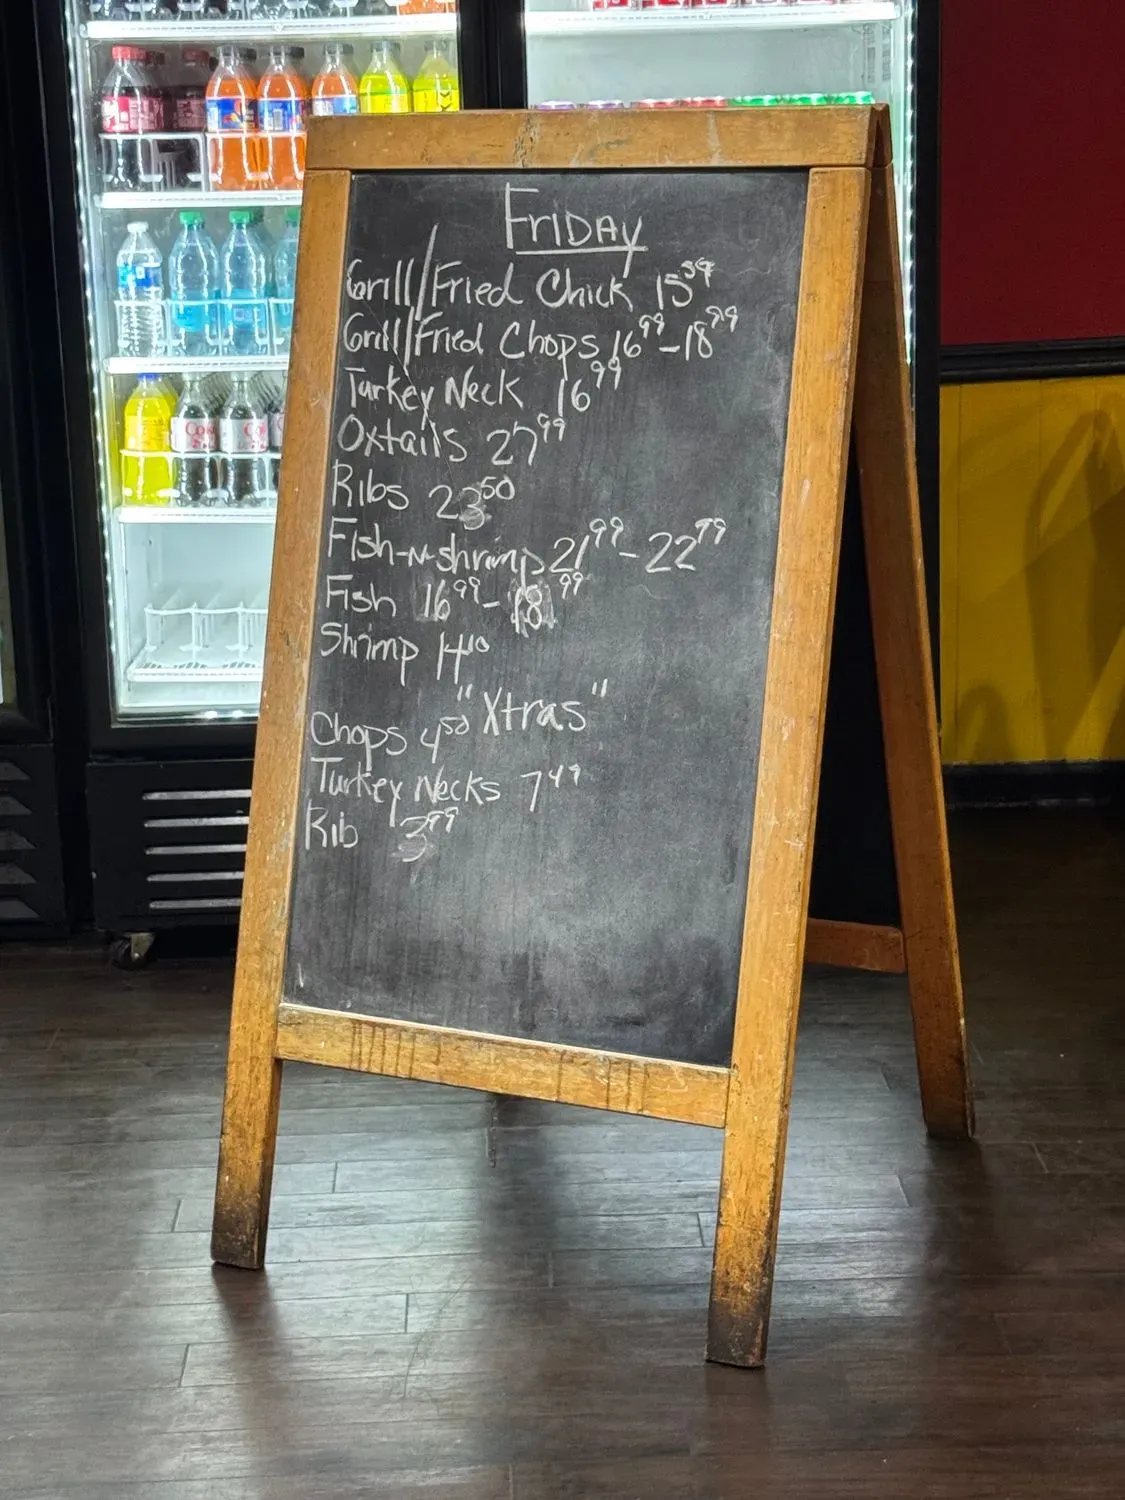 FRIDAY
Grill/Fried Chick 15 59
Grill/Fried Chops 16 99 - 18 99
Turkey Neck 16 99
Oxtails 27 99
Ribs 23 50
Fish-N-shrimp 21 99 - 22 99
Fish 16 99 - 18 99
Shrimp 14 10
"Xtras"
Chops 4 50
Turkey Necks 7 49
Rib 3 99